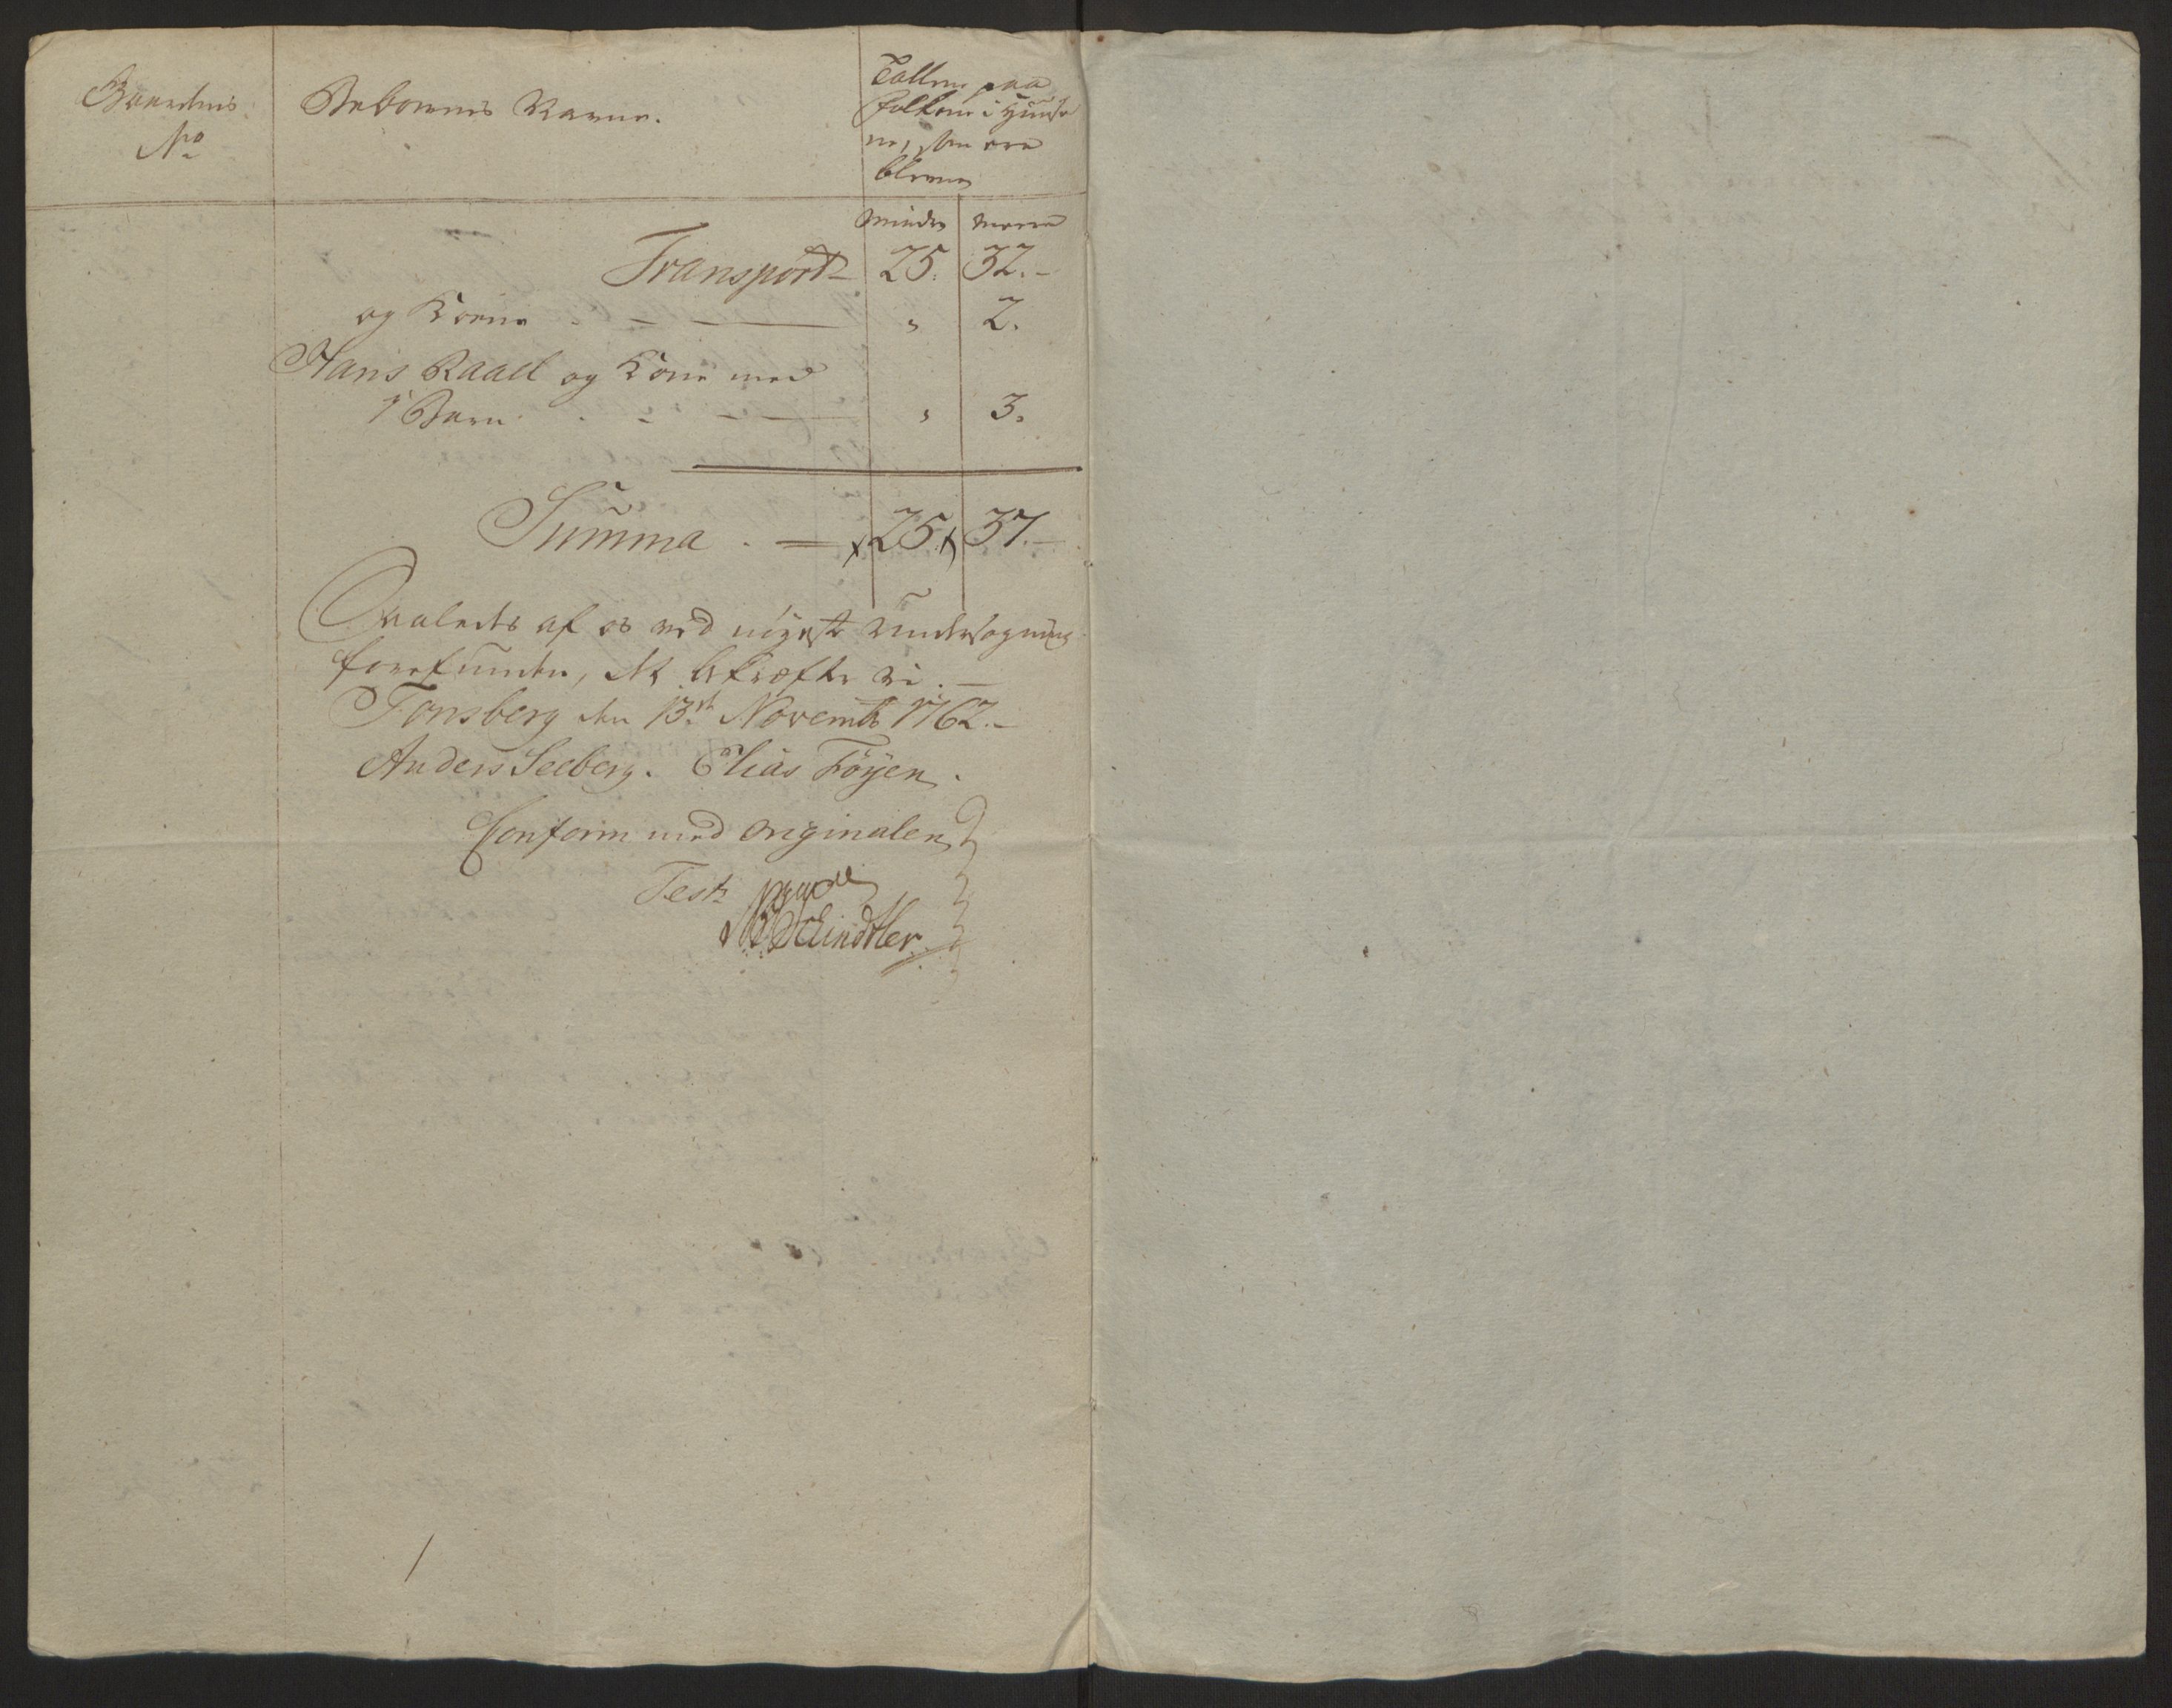 Gaardens No
Beboernes Navne.
Tallene paa
Folkene i Huuse
ne, som ere
blevne
mindre meere
Transport 25. 32.
og Kone - - - " 2.
Hans Raael og Kone med
1 Barn - - - " 3.
Summa . = 25. 37.
Saaledes af os ved nøyeste Undersøgning
forefunden, det bekræfter vi.
Tonsberg den 13de Novembr 1762.
Anders Seeberg. Elias Föyen.
Conform med Originalen
Test:
Schindtler